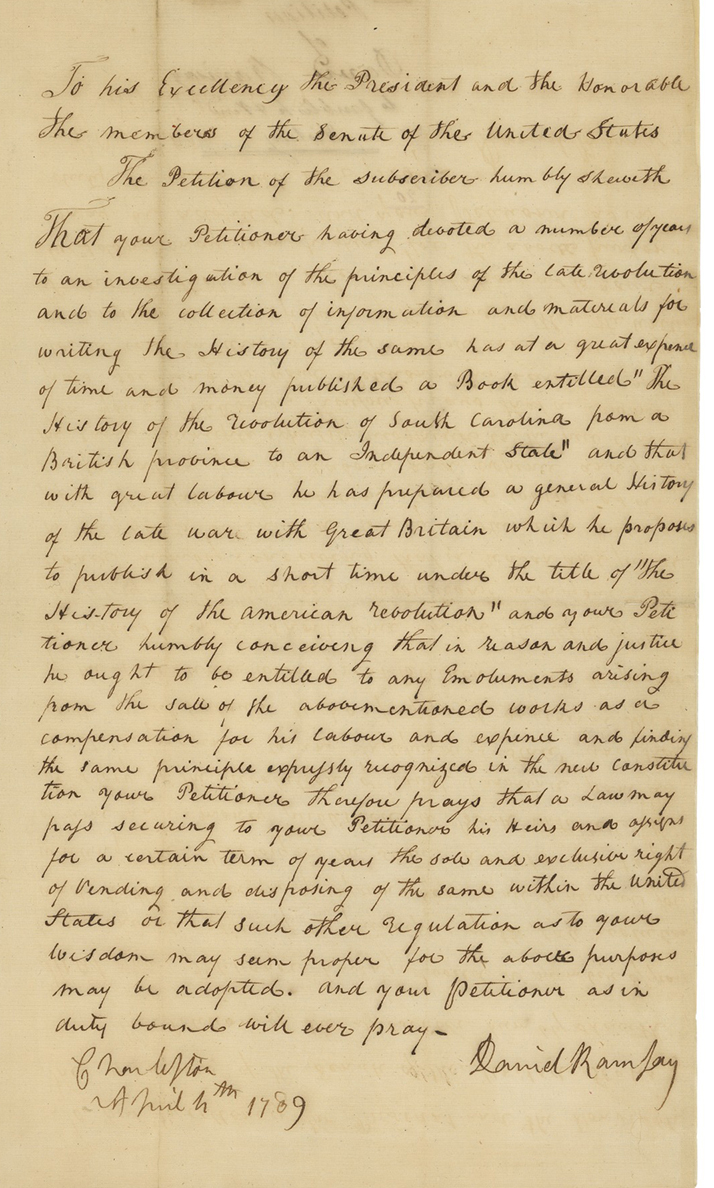 To his Excellency the President and the Honorable
the members of the Senate of the United States
The Petition of the subscriber humbly sheweth
That your Petitioner having devoted a number of years
to an investigation of the principles of the late revolution
and to the collection of information and materials for
writing the History of the same has at a great expence
of time and money published a Book entitled "The
History of the revolution of South Carolina from a
British province to an Independent State" and that
with great labour he has prepared a general History
of the late war with Great Britain which he proposes
to publish in a short time under the title of "the
History of the american revolution" and your Peti
tioner humbly conceiving that in reason and justice
he ought to be entitled to any Emoluments arising
from the sale of the abovementioned works as a
compensation for his labour and expence and finding
the same principle expressly recognized in the new constitu
tion your Petitioner therefore prays that a Law may
pass securing to your Petitioner his Heirs and assigns
for a certain term of years the sole and exclusive right
of Vending and disposing of the same within the United
States or that such other regulation as to your
wisdom may seem proper for the above purposes
may be adopted. and your Petitioner as in
duty bound will ever pray-
David Ramsay
Charleston
April 4th 1789